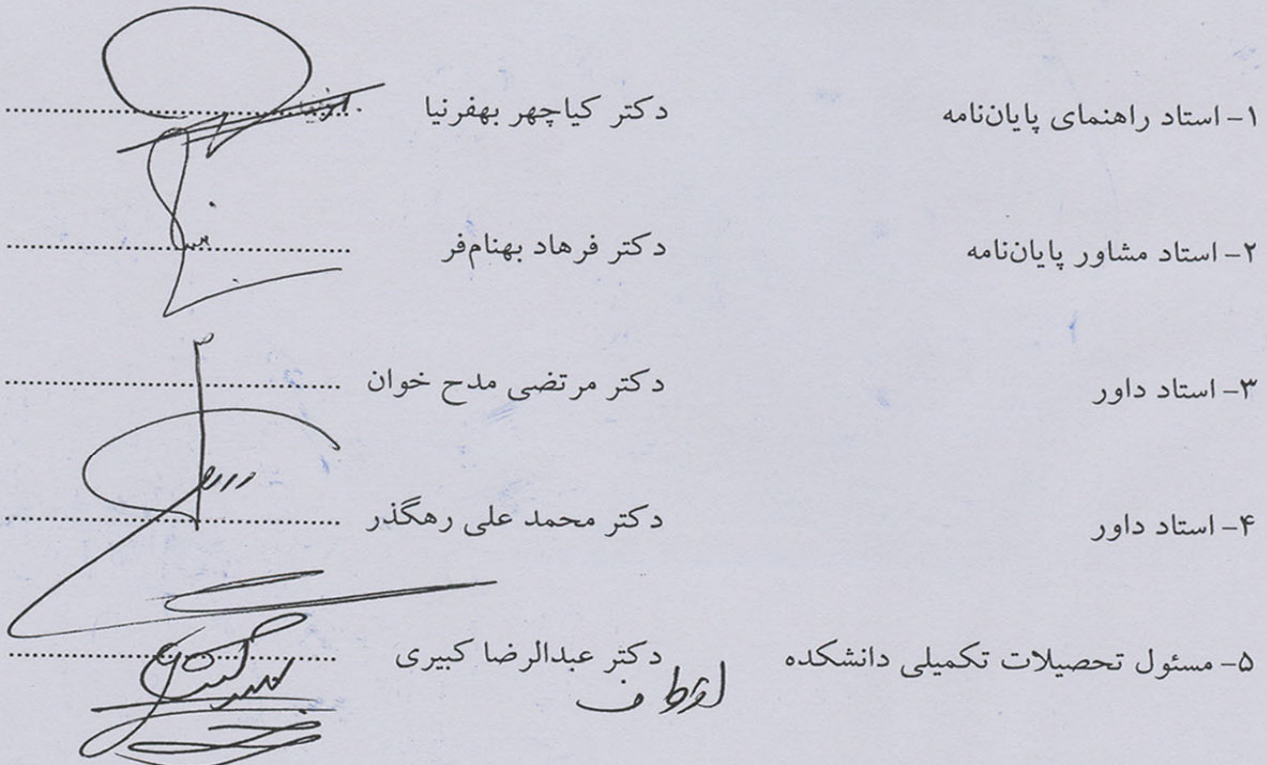 ۱- استاد راهنمای پایان‌نامه دکتر کیاچهر بهفرنیا
۲- استاد مشاور پایان‌نامه دکتر فرهاد بهنام‌فر
۳- استاد داور دکتر مرتضی مدح خوان
۴- استاد داور دکتر محمد علی رهگذر
۵- مسئول تحصیلات تکمیلی دانشکده دکتر عبدالرضا کبیری
از طرف